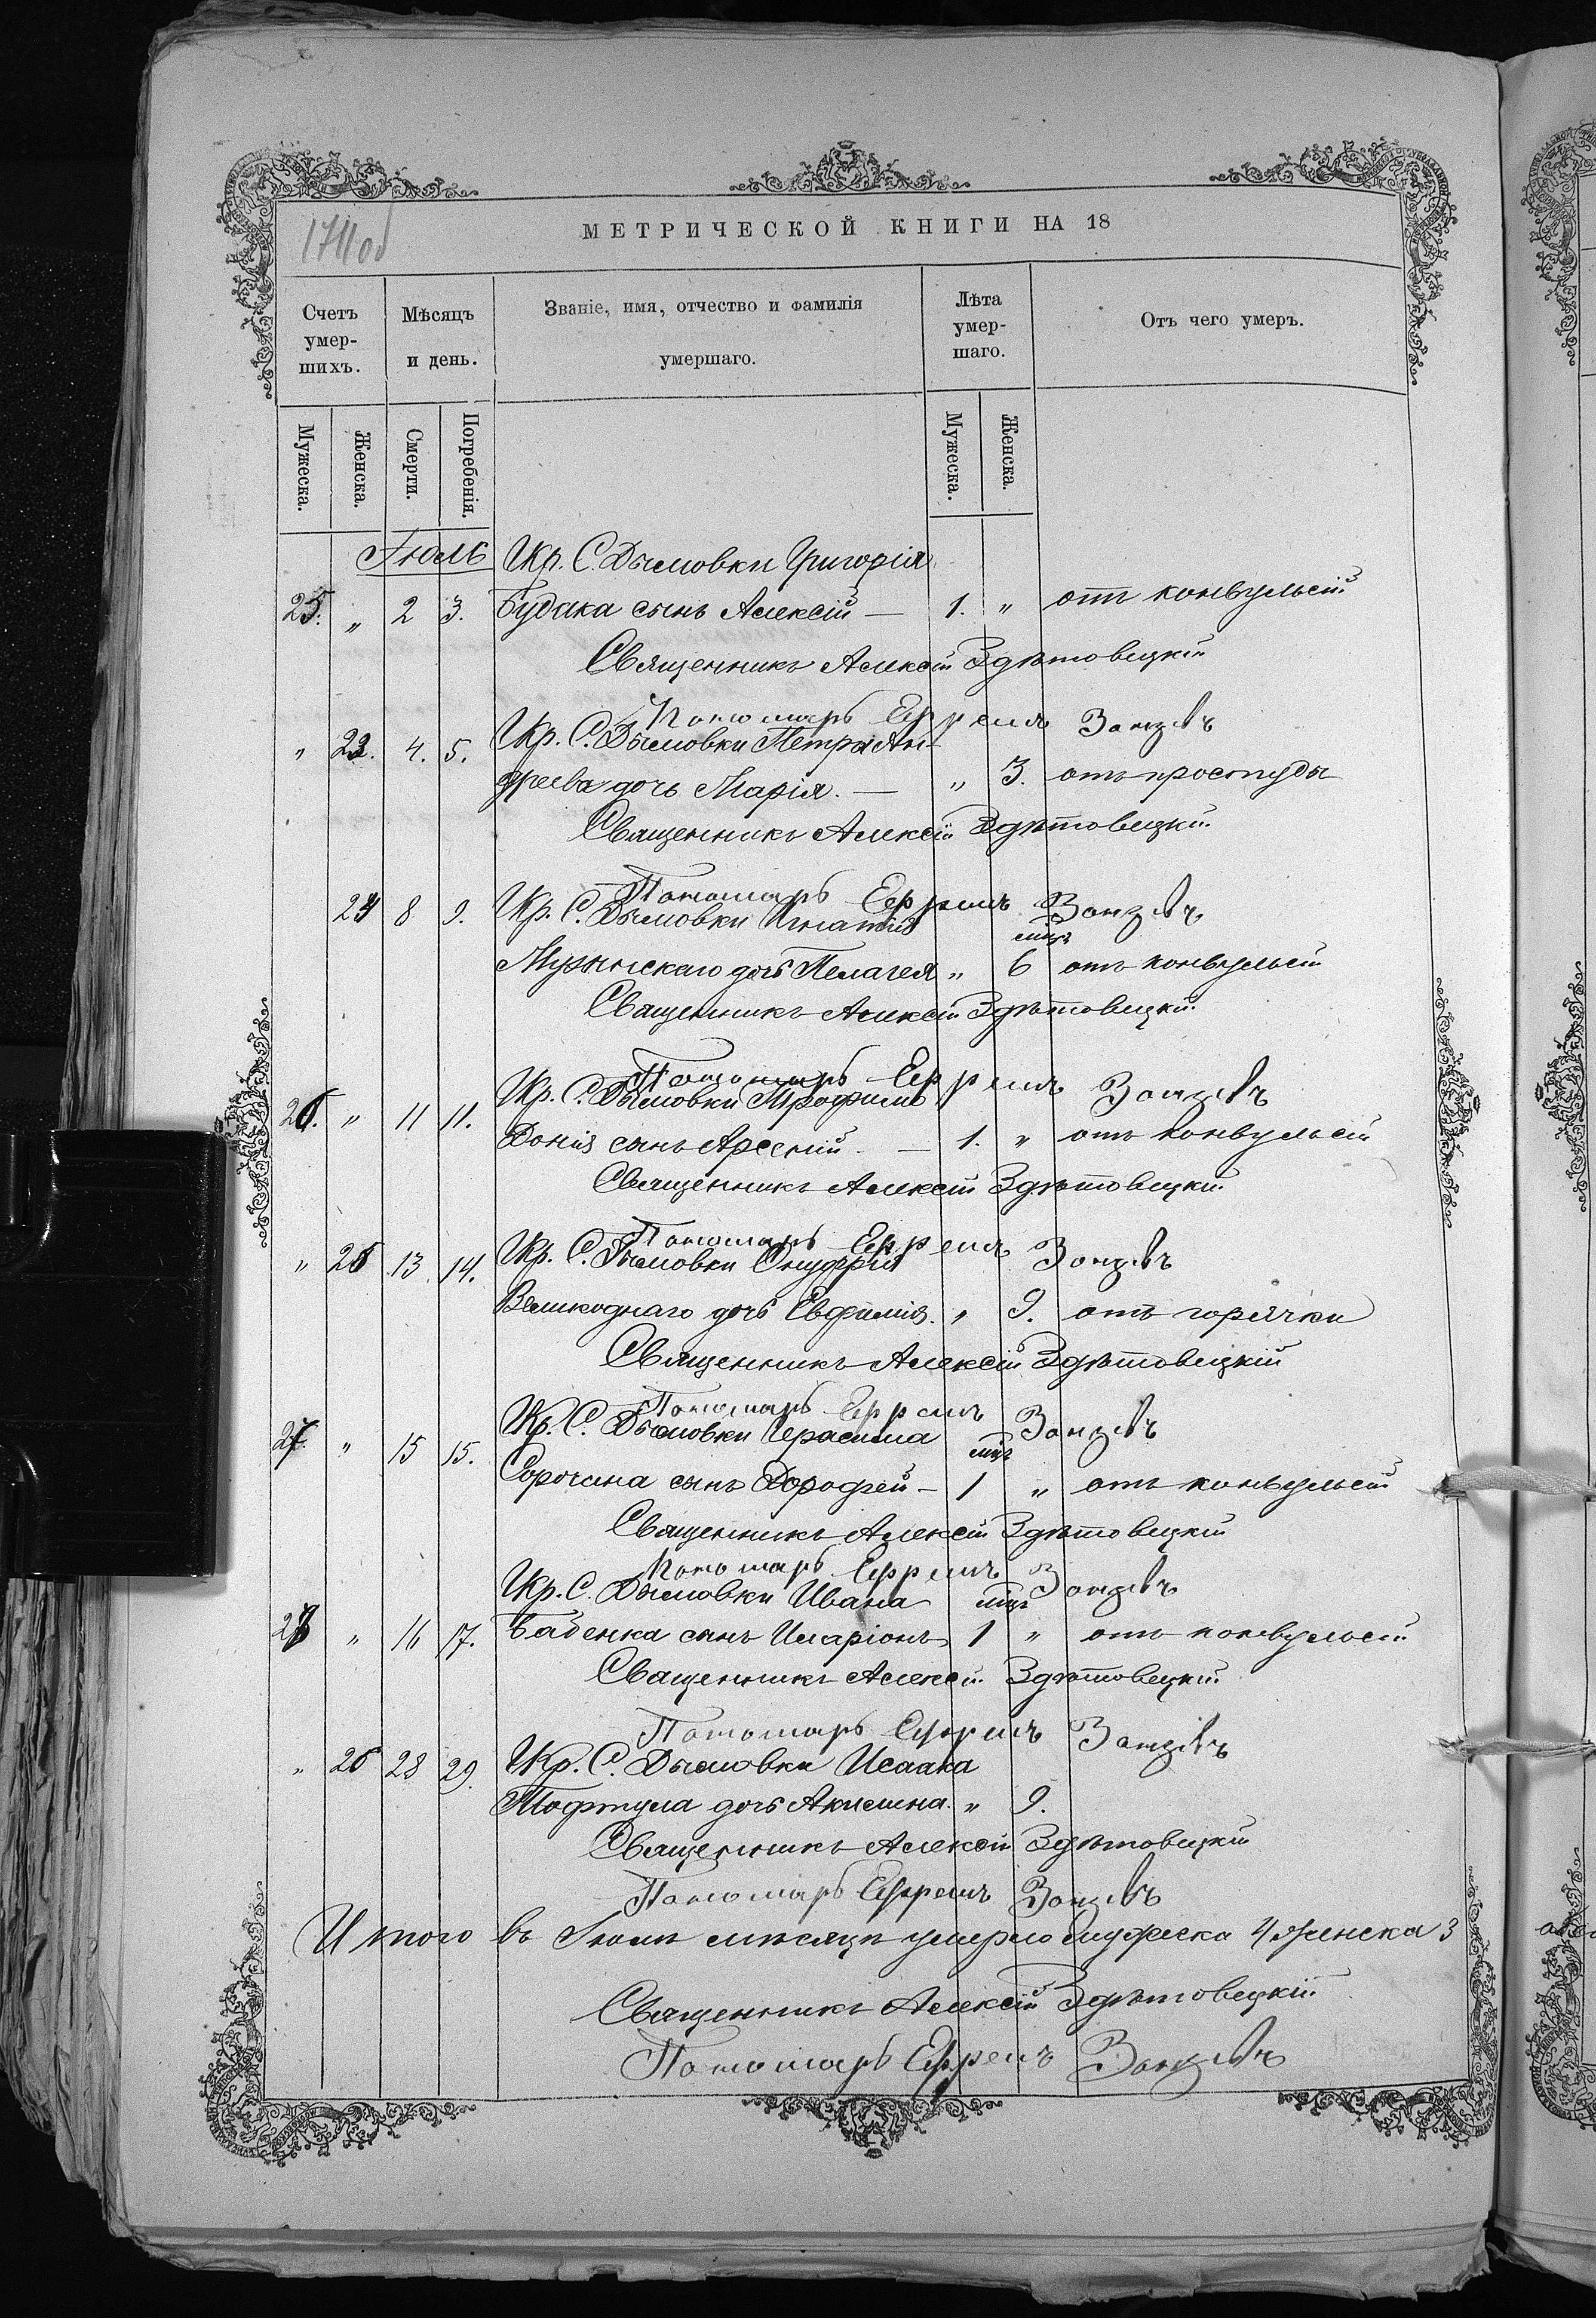 174 об
МЕТРИЧЕСКОЙ КНИГИ НА 18
Счетъ умер- шихъ.
Мѣсяцъ и день.
Званіе, имя, отчество и фамилія умершаго.
Лѣта умер- шаго.
Отъ чего умеръ.
Мужеска. Женска. Смерти. Погребенія. Мужеска. Женска.
Іюль Кр. С. Дымовки Григорія
25. „ 2 3. Будака сынъ Алексій — 1. „ отъ конвульсій
Священникъ Алексій Здѣтовецкій
Пономарь Ефремъ
Кр. С. Дымовки Петра Ан-
„ 23. 4. 5. дреева дочь Марія. — „ 3. отъ простуды
Священникъ Алексій Здѣтовецкій
Пономарь Ефремъ
24 8 9. Кр. С. Дымовки Игнатія мѣц.
дочь Пелагея „ 6 отъ конвульсій
Священникъ Алексій Здѣтовецкій
Пономарь Ефремъ
26. „ 11 11. Кр. С. Дымовки Трофима
Донія сынъ Арсеній — 1. „ отъ конвульсій
Священникъ Алексій Здѣтовецкій
Пономарь Ефремъ
„ 25 13 14. Кр. С. Дымовки Онуфрія
Великоднаго дочь Евфимія. „ 9. отъ горячки
Священникъ Алексій Здѣтовецкій
Пономарь Ефремъ
Кр. С. Дымовки Герасима мѣц
27. „ 15 15. Сорочана сынъ Дорофей — 1 „ отъ конвульсій
Священникъ Алексій Здѣтовецкій
Пономарь Ефремъ
Кр. С. Дымовки Ивана мѣц
28 „ 16 17. Бабенка сынъ Иларіонъ 1 „ отъ конвульсій
Священникъ Алексій Здѣтовецкій
Пономарь Ефремъ
„ 26 28 29. Кр. С. Дымовки Исаака
Тофтула дочь Акилина. „ 9.
Священникъ Алексій Здѣтовецкій
Пономарь Ефремъ
Итого въ Іюлѣ мѣсяцѣ умерло мужеска 4 женска 3
Священникъ Алексій Здѣтовецкій
Пономарь Ефремъ